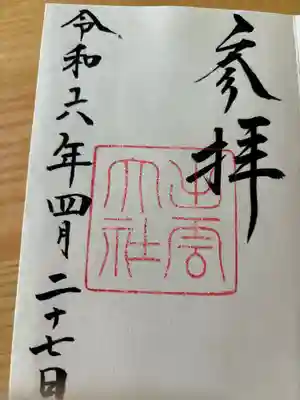 参拝
出雲
大社
令和六年四月二十七日